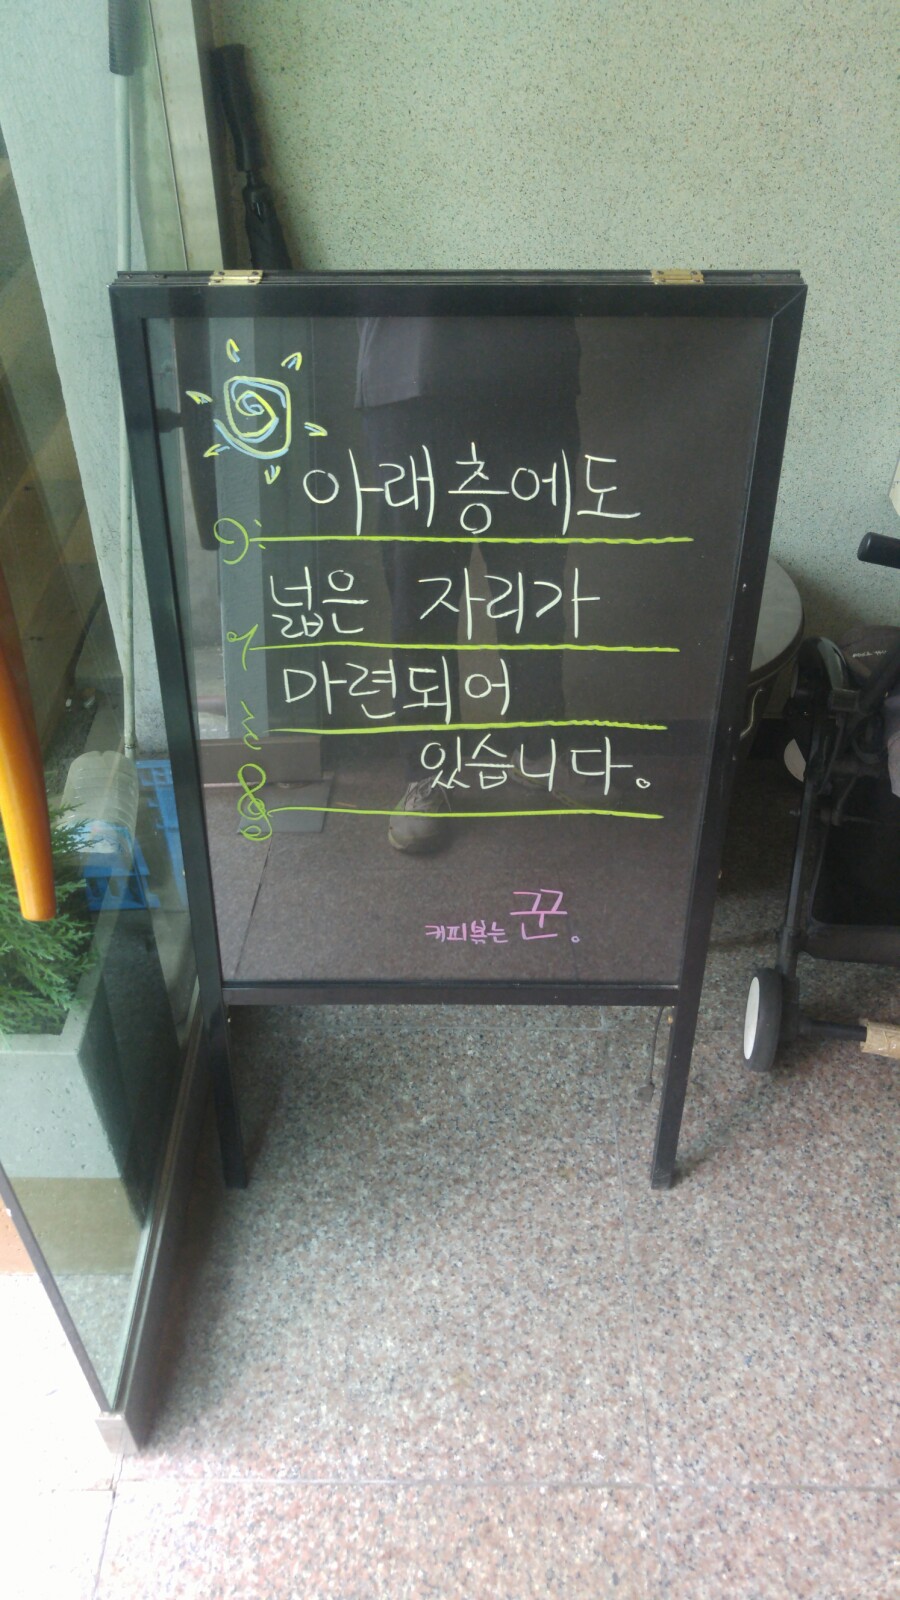 아래층에도
넓은 자리가
마련되어
있습니다.
커피볶는 꾼.